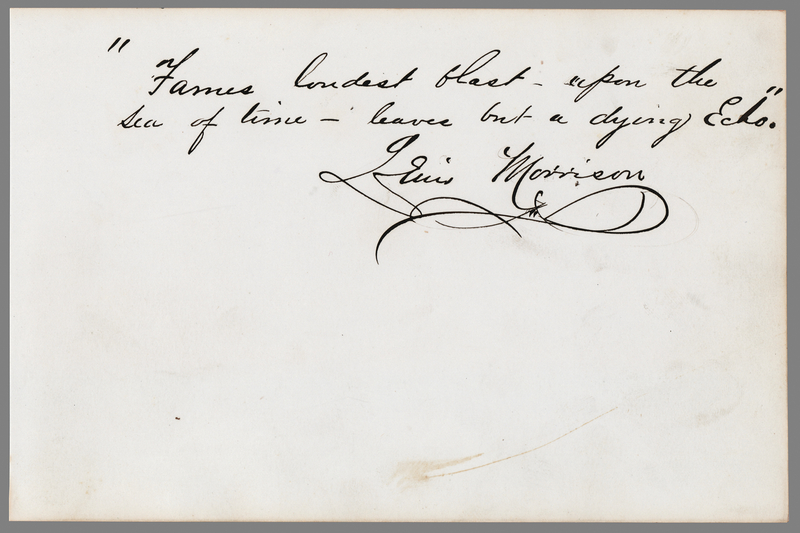 "Fames loudest blast - upon the
sea of time - leaves but a dying Echo."
Lewis Morrison